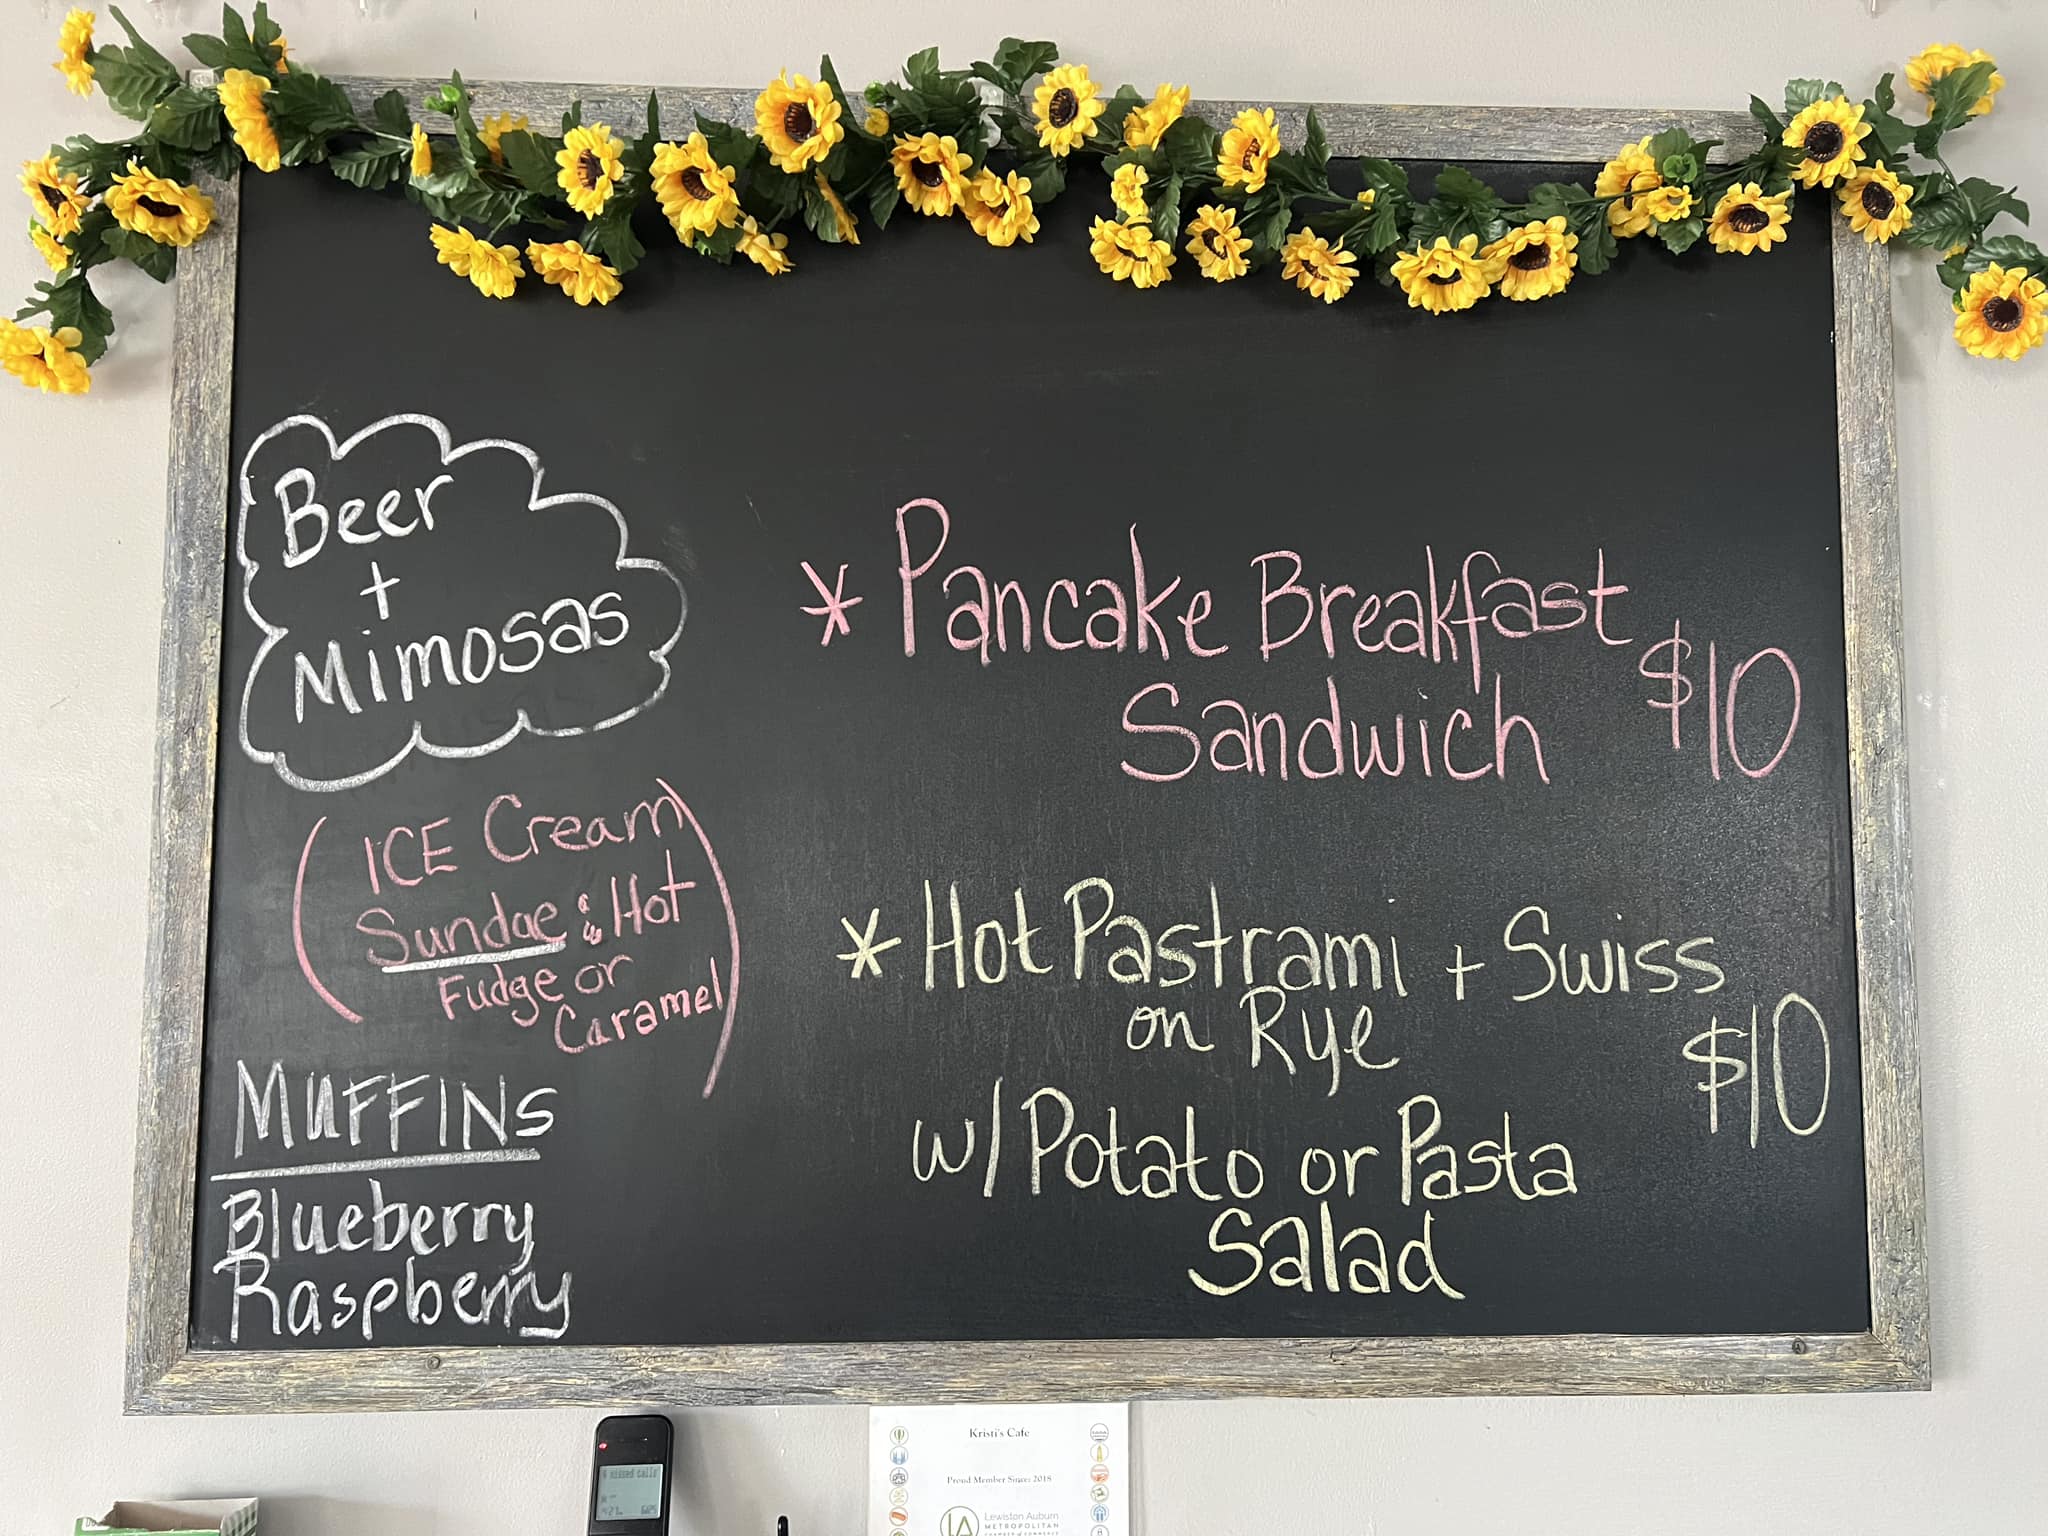 Beer
+
Mimosas
(ICE Cream
Sundae & Hot
Fudge or
Caramel)
MUFFINS
Blueberry
Raspberry
* Pancake Breakfast
Sandwich $10
* Hot Pastrami + Swiss
on Rye
$10
w/ Potato or Pasta
Salad
missed calls
Kristi's Cafe
Proud Member Since: 2018
LA
Lewiston Auburn
METROPOLITAN
CHAMBER of COMMERCE